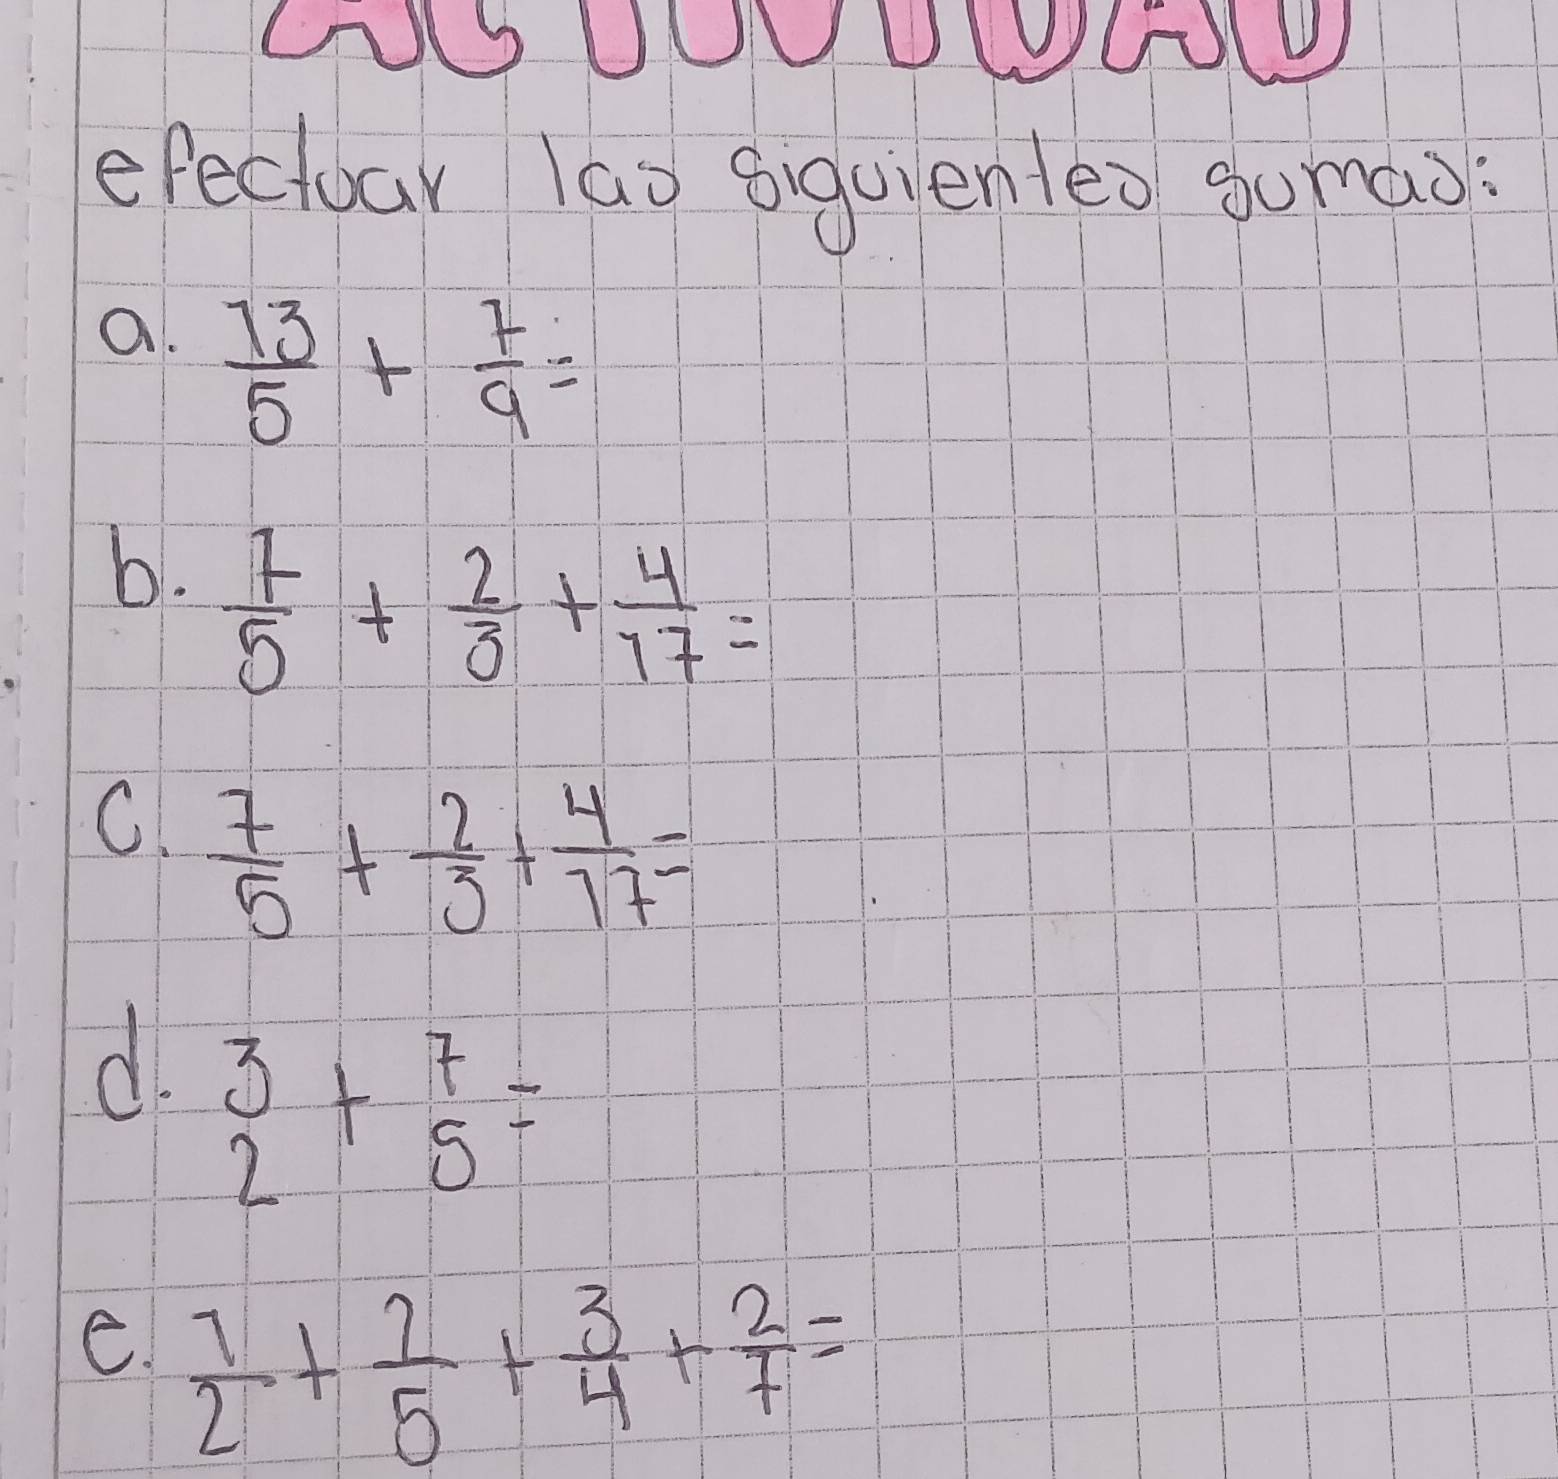 ACTIVIDAD
efectuar las siguientes sumas:
a. 13/5 + 7/9 =
b. 7/5 + 2/3 + 4/17 =
c. 7/5 + 2/3 + 4/17 =
d. 3/2 + 7/5 =
e. 1/2 + 2/5 + 3/4 + 2/7 =